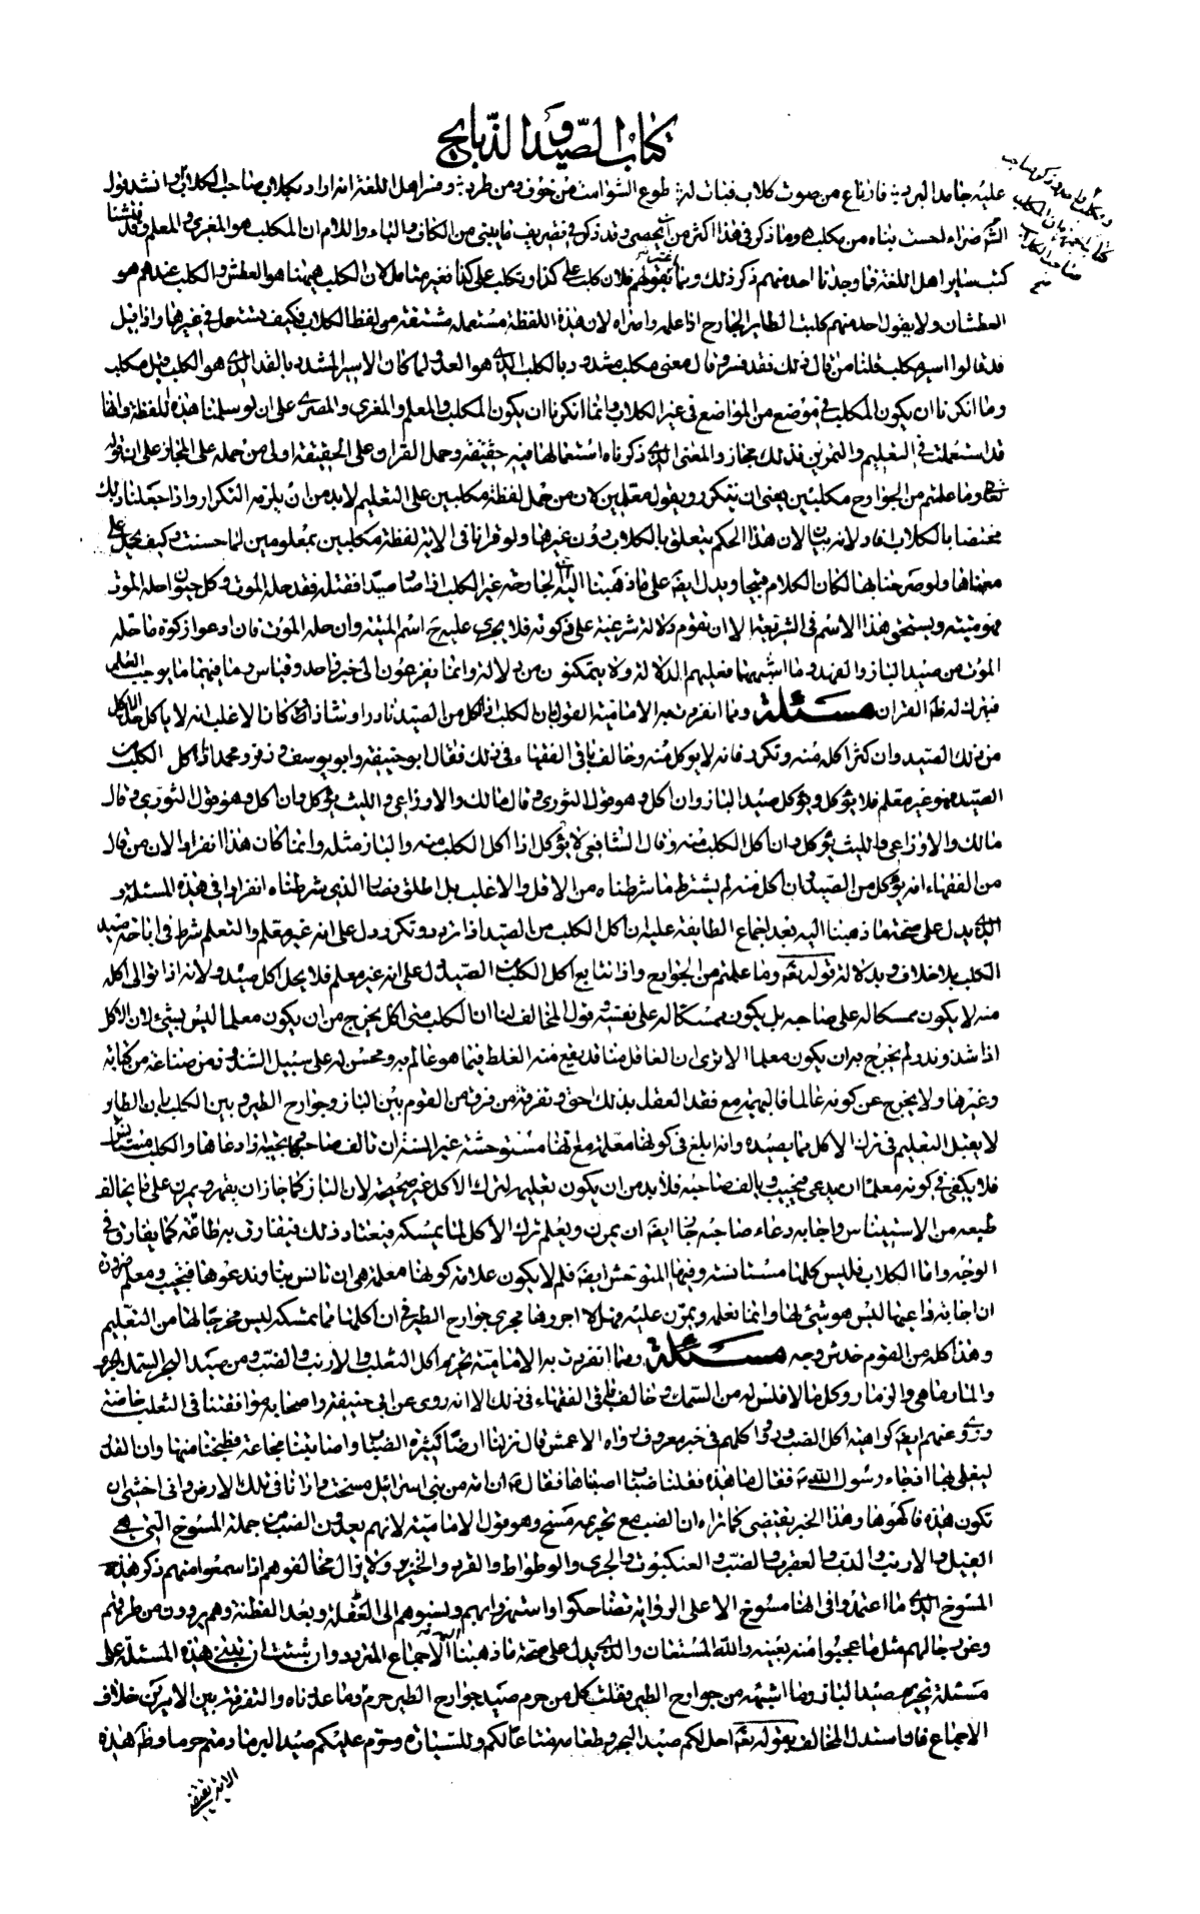 كتاب الصيد والذبايح
عليه جامد البرد فارتاع من صوت كلاب فبات له طوع الشوامت من خوف ومن طرد وفسر اهل اللغة انه اراد بكلاب صاحب الكلاب وانشد قول
الشعر ضراء احست بناه من مكلب وما ذكر في هذا اكثر من ان يحصى وقد ذكر في تصريف ما يبنى من الكاف والباء واللام ان المكلب هو المغري والمعلم وقد فتشنا
كتب ساير اهل اللغة فما وجدنا احد منهم ذكر ذلك وانما يقولهم فلان كلب على كذا وتكلب على كذا فغير متأمل لان الكلب هيهنا هو العطش والكلب عندهم هو
العطشان ولا يقول احد منهم كلبت الطاير الجارح اذا علمه واضراه لان هذه اللفظة مستعمله مشتقة من لفظ الكلاب فكيف تستعمل في غيرها واذا قيل
قد قالوا اسير مكلب قلنا من قال ذلك فقد فسره وقال معنى مكلب مشدود بالكلب الذي هو القد ولما كان الاسير المشدود بالقد الذي هو الكلب قيل مكلب
وما انكرنا ان يكون المكلب في موضع من المواضع في غير الكلاب وانما انكرنا ان يكون المكلب والمعلم والمغري والمضري على ان لو سلمنا هذه اللفظة وانها
قد استعملت في التعليم والتمرين فذلك مجاز والمعنى الذي ذكرناه استعمالها فيه حقيقة وحمل القران على الحقيقة اولى من حمله على المجاز على ان قوله
تعالى وما علمتم من الجوارح مكلبين يغني ان يتكرر ويقول معلمين لان من حمل لفظة مكلبين على التعليم لا بد من ان يلزمه التكرار واذا جعلنا ذلك
مختصا بالكلاب افاد لانه بيان لان هذا الحكم يتعلق بالكلاب دون غيرها ولو قرانا في الاية لفظة مكلبين بمعلومين لما حسنت وكيف يحمل على
معناها ولو صرحنا بها لكان الكلام قبيحا ويدل ايضا على ما ذهبنا اليه ان الجارحة غير الكلب اذا صاد صيدا فقتله فقد حله الموت وكل حيوان حله الموت
فهو ميتة ويستحق هذا الاسم في الشريعة الا ان تقوم دلالة شرعية على ذكوته فلا يجري عليه ح اسم الميتة وان حله الموت فان ادعوا ذكوة ما حله
الموت من صيد الباز والفهد وما اشبههما فعليهم الدلالة ولا يتمكنون من دلالة وانما يفزعون الى خبر واحد وقياس وما فيهما ما يوجب العلم
فيترك له ظاهر القران مسئلة ومما انفردت به الامامية القول بان الكلب اذا اكل من الصيد نادرا وشاذا وكان الاغلب انه لا ياكل حل الاكل
من ذلك الصيد وان كثر اكله منه وتكرر فانه لا يؤكل منه وخالف باقي الفقهاء في ذلك فقال ابو حنيفة وابو يوسف وزفر ومحمد اذا اكل الكلب من
الصيد فهو غير معلم فلا يؤكل ويؤكل صيد الباز وان اكل وهو قول الثوري وقال مالك والاوزاعي والليث يؤكل وان اكل وهو قول الثوري وقال
مالك والاوزاعي والليث يؤكل وان اكل الكلب منه وقال الشافعي لا يؤكل اذا اكل الكلب منه والباز مثله وانما كان هذا انفرادا لان من قال
من الفقهاء انه يؤكل من الصيد وان اكل منه لم يشترط ما شرطناه من الاقل والاغلب بل اطلق فصار الذي شرطناه انفرادا في هذه المسئلة و
الذي يدل على صحة ما ذهبنا اليه بعد اجماع الطايفة عليه ان اكل الكلب من الصيد اذا تردد وتكرر دل على انه غير معلم والتعلم شرط في اباحة صيد
الكلب بلا خلاف وبدلالة قوله تعالى وما علمتم من الجوارح واذا تتابع اكل الكلب من الصيد دل على انه غير معلم فلا يحل اكل صيده ولانه اذا توالى اكله
منه لا يكون ممسكا له على صاحبه بل يكون ممسكا له على نفسه وقول المخالف لنا ان الكلب متى اكل يخرج من ان يكون معلما ليس بشيء لان الاكل
اذا شذ وندر لم يخرج به ان يكون معلما الا ترى ان العاقل منا قد يقع منه الغلط فيما هو عالم به ومحسن له على سبيل الشذوذ من صناعة من كتابة
وغيرها ولا يخرج عن كونه عالما فالبهيمة مع فقد العقل بذلك احق وتفرقة من فرق من القوم بين الباز وجوارح الطير وبين الكلب بان الطاير
لا يقبل التعليم في ترك الاكل مما يصيده وانه ابلغ في كونها معلمة مع انها مستوحشة غير انسة ان تالف صاحبها وتجيبه اذا دعاها والكلب مستانس
فلا يكفي في كونه معلما ان يدعى فيجيب ويالف صاحبه فلا بد من ان يكون تعليمه لترك الاكل غير صحيحة لان الباز كما جاز ان يقهر ويمرن على ما يخالف
طبعه من الاستيناس واجابه دعاء صاحبه جاز ايضا ان يمرن ويعلم ترك الاكل لما يمسكه فيعتاد ذلك فيفارق به طباعه كما يفارق في
الوجه واما الكلاب فليس كلها مستانسة وفيها المتوحش ايضا فلم لا يكون علامة كونها معلمة هي ان تانس بنا وندعوها فتجيب ومعلم ضرورة
ان اجابة داعيها ليس هو شئ لها وانما تعلمه وتمرن عليه فهلا اجروها مجرى جوارح الطير في ان اكلها مما تمسكه ليس مخرجا لها من التعليم
وهذا كله من القوم خدش وجه مسئلة ومما انفردت به الامامية تحريم اكل الثعلب والارنب والضب ومن صيد البحر السمك الجري
والمارماهي والزمار وكل ما لا فلس له من السمك وخالف باقي الفقهاء في ذلك الا انه روى عن ابي حنيفة واصحابه موافقتنا في الثعلب خاصة
وروي عنهم ايضا كراهية اكل الضب ورووا كلهم في خبر معروف رواه الاعمش قال نزلنا ارضا كثيرة الضباب واصابتنا مجاعة فطبخنا منها وان القدر
ليغلي بها اذ جاء رسول الله ص فقال ما هذه فقلنا ضباب اصبناها فقال ان امة من بني اسرائيل مسخت دوابا في تلك الارض وانى اخشى ان
تكون هذه فاكفوها وهذا الخبر يقتضي كما تراه ان الضب مع تحريمه مسخ وهو قول الامامية لانهم يعدون الضب من جملة المسوخ التي هي
الفيل والارنب والدب والعقرب والضب والعنكبوت والجري والوطواط والقرد والخنزير ولا يزال مخالفوهم اذا سمعوا منهم ذكر هذه
المسوخ التي ما اعتمدوا في انها مسوخ الا على الرواية تضاحكوا واستهزؤا بهم ونسبوهم الى الغفلة وبعد الفطنة وهم يروون من طرقهم
وعن رجالهم مثل ما عجبوا منه بعينه والله المستعان والذي يدل على صحة ما ذهبنا اليه الاجماع المتردد وان شئت ان تبني هذه المسئلة على
مسئلة تحريم صيد الباز وما اشبهه من جوارح الطير وقلت كل من حرم صيد جوارح الطير حرم ما عددناه والتفرقة بين الامرين خلاف
الاجماع فان استدل المخالف بقوله تعالى احل لكم صيد البحر وطعامه متاعا لكم وللسيارة وحرم عليكم صيد البر ما دمتم حرما وظاهر هذه
الاية يقتضي